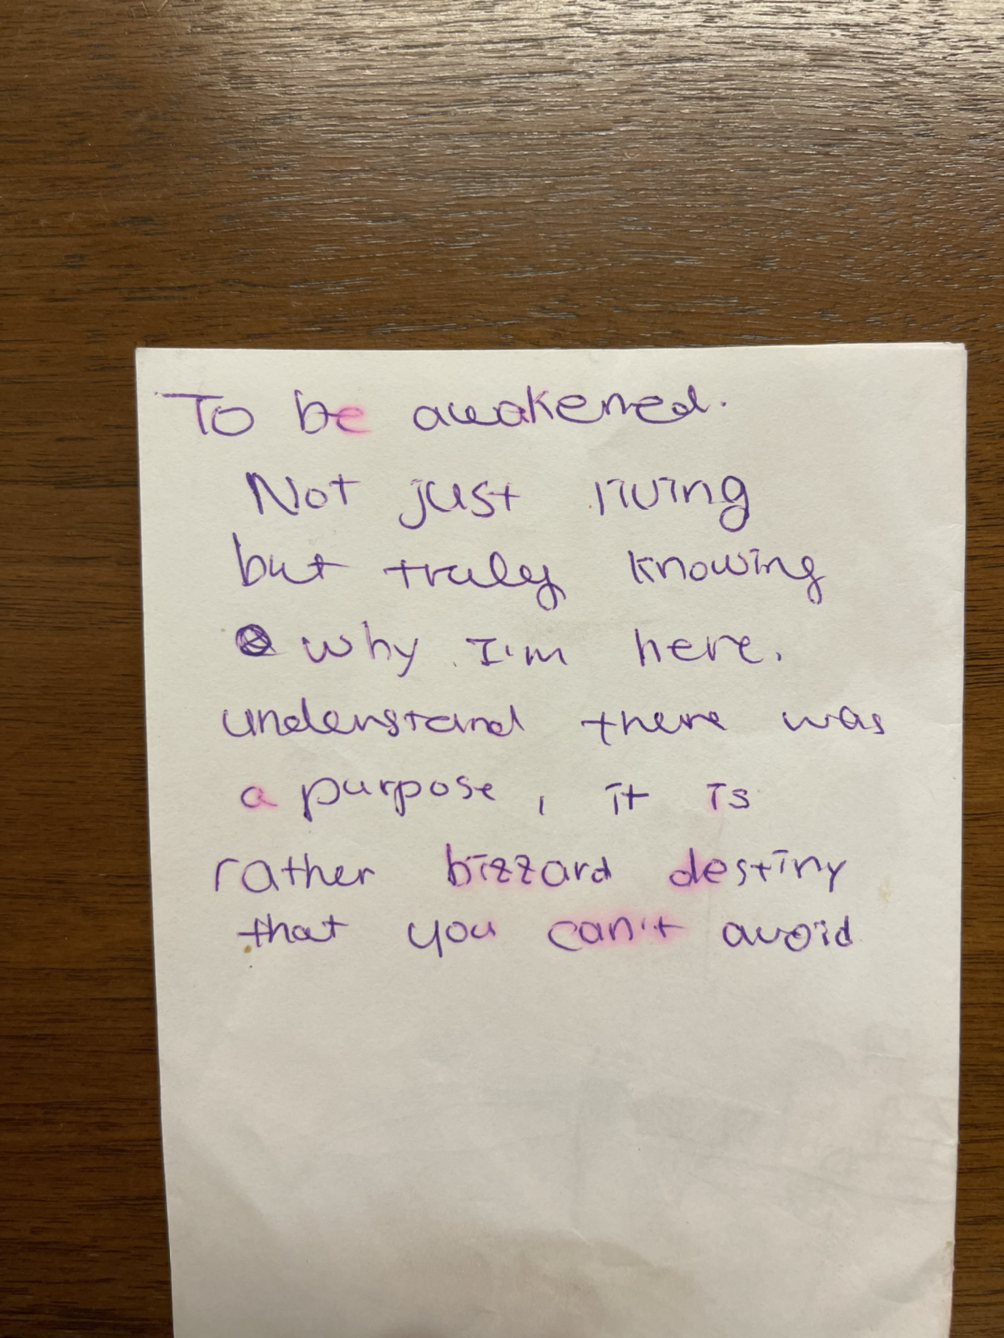 To be awakened.
Not just living
but truly knowing
why I'm here.
understand there was
a purpose, it is
rather bizzard destiny
that you can't avoid